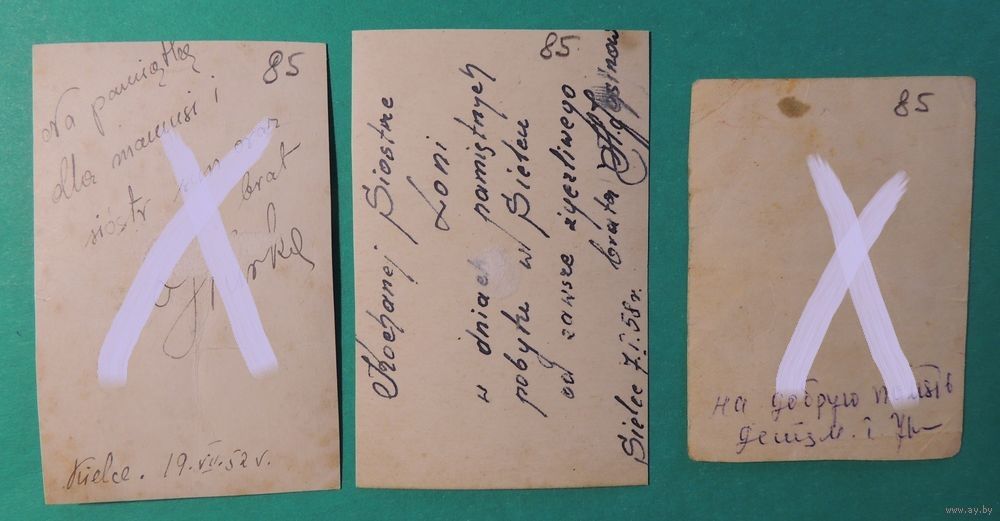 85
Na pamiątkę
dla mamusi i
sióstr syn oraz
brat
Kielce. 19.VII.52 r.
85
Kochanej Siostre
Loni
w dniach pamiętnych
pobytu w Sielcu
od zawsze życzliwego
brata
Sielce 7.I.58 r.
85
на добрую
і
www.ay.by